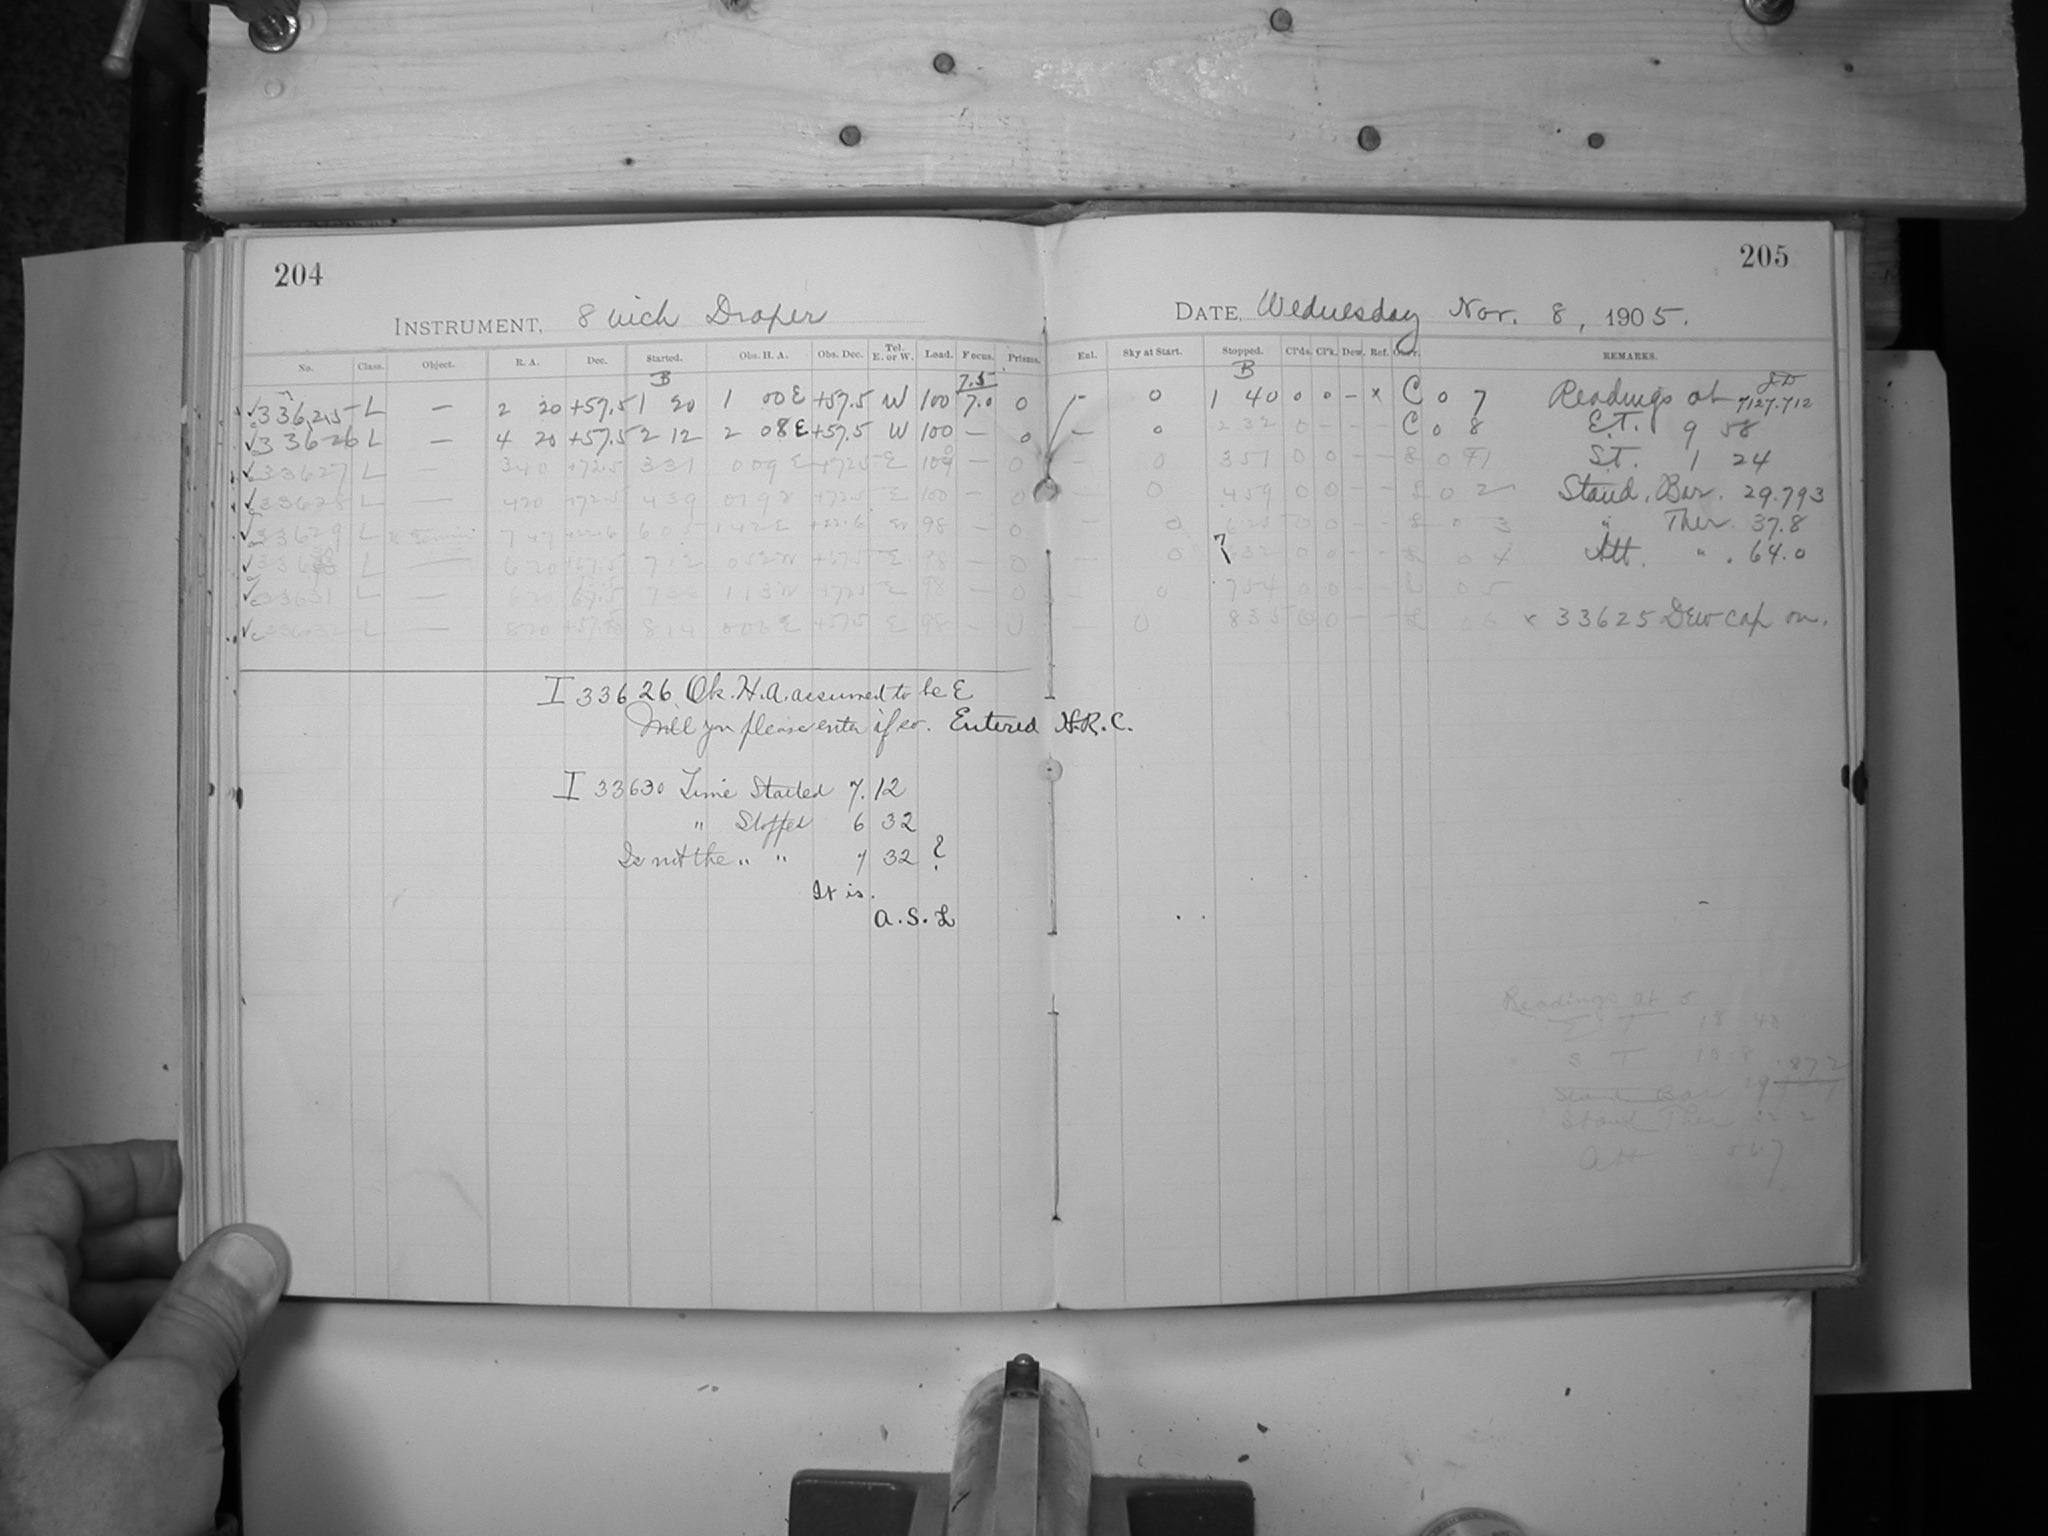 204
INSTRUMENT, 8 inch Draper
No. Class. Object. R. A. Dec. Started. Obs. H. A. Obs. Dec. Tel. E. or W. Load. Focus. Prisms.
B 7.5
33625 L — 2 20 +57.5 1 20 1 00 E +57.5 W 100 7.0 0
33626 L — 4 20 +57.5 2 12 2 08 E +57.5 W 100 — 0
33627 L — 3 40 +72.5 3 31 0 09 E +72.5 E 100 — 0
33628 L — 4 20 +72.5 4 39 0 19 W +72.5 E 100 — 0
33629 L 7 47 +22.6 6 05 1 42 E +22.6 98 — 0
L — 6 20 +67.5 7 12 0 52 W +67.5 E 98 — 0
33631 L — 6 20 67.5 1 13 W +72.5 E 98 — 0
33632 L — 8 20 +57.5 8 14 +57.5 E 98 — 0
I 33626 Ok. H.A. assumed to be E
Will you please enter if so. Entered H.R.C.
I 33630 Time Started 7.12
" Stopped 6 32
Is not the " " 7 32 ?
It is.
A.S.L
205
DATE, Wednesday Nov. 8, 1905.
Enl. Sky at Start. Stopped. Cl'ds. Cl'k. Dew. Ref. Obsr. REMARKS.
B
— 0 1 40 0 0 — x C 0 7 Readings at J.D. 7127.712
— 0 2 32 0 - - - C 0 8 E.T. 9 58
— 0 3 51 0 0 - - L 0 S.T. 1 24
— 0 4 59 0 0 - - L 0 2 Stand. Bar. 29.793
— 0 6 25 0 0 - - L 0 3 " Ther. 37.8
— 0 7 32 0 0 - - L 0 4 Att. " . 64.0
— 0 7 54 0 0 - - L 0 5
— 0 8 35 0 0 - - L 0 6 x 33625 Dew cap on.
Readings at 5
E T 18 40
S T
Stand Bar 29 .872
Stand Ther
Att 56.7